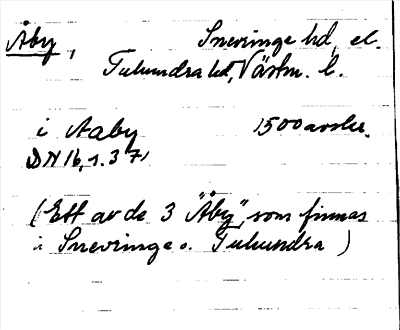 Åby, Snevringe hd, el.
Tuhundra hd, Västm. l.
i Aaby 1500 avskr.
DN 16, s. 371
(Ett av de 3 "Åby", som finnas
i Snevringe o. Tuhundra)